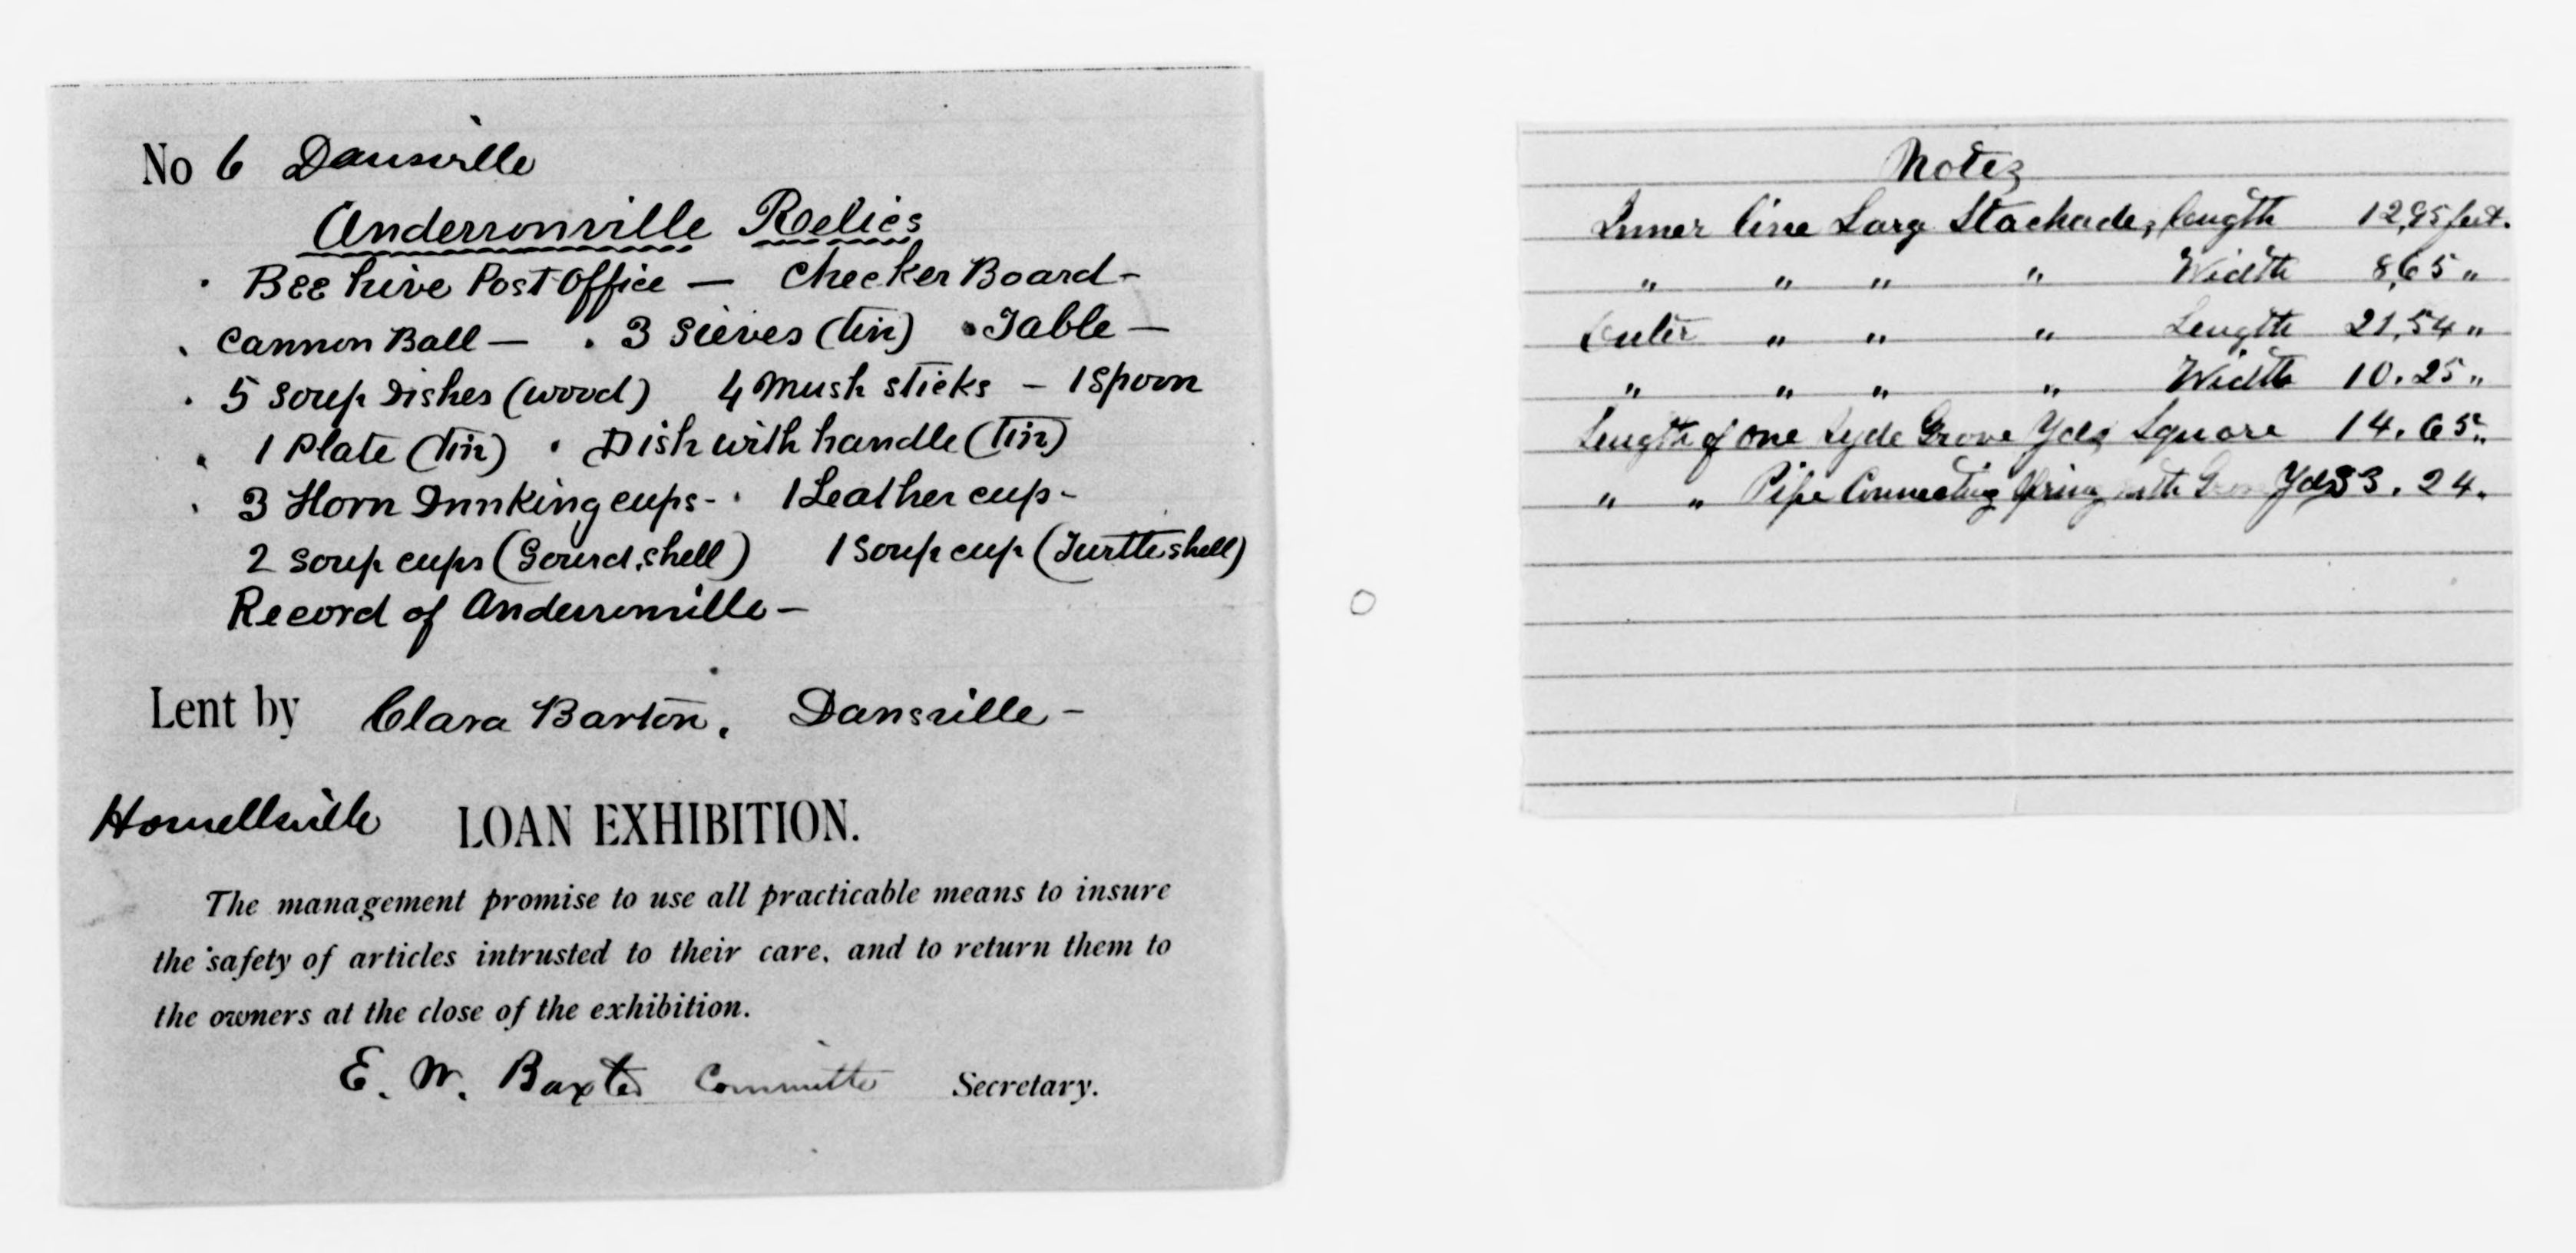 No 6 Dansville
Andersonville Relics
Bee hive Post Office — Checker Board -
Cannon Ball — 3 Sieves (tin) Table —
5 Soup Dishes (wood) 4 Mush sticks - 1 Spoon
1 Plate (tin) Dish with handle (Tin)
3 Horn Drinking cups - 1 Leather cup -
2 Soup cups (Gourd shell) 1 Soup cup (Turtle shell)
Record of Andersonville -
Lent by Clara Barton, Dansville -
Hornellsville LOAN EXHIBITION.
The management promise to use all practicable means to insure
the safety of articles intrusted to their care, and to return them to
the owners at the close of the exhibition.
E. W. Baxter Committee Secretary.
Notes
Inner line Larg Stachade, length 12,95 feet.
" " " " Width 8,65 "
Outer " " " Length 21,54 "
" " " " Width 10.25 "
Length of one Syde Grove Yds Square 14.65 "
" " Pipe Connecting Spring with Yds 33.24.